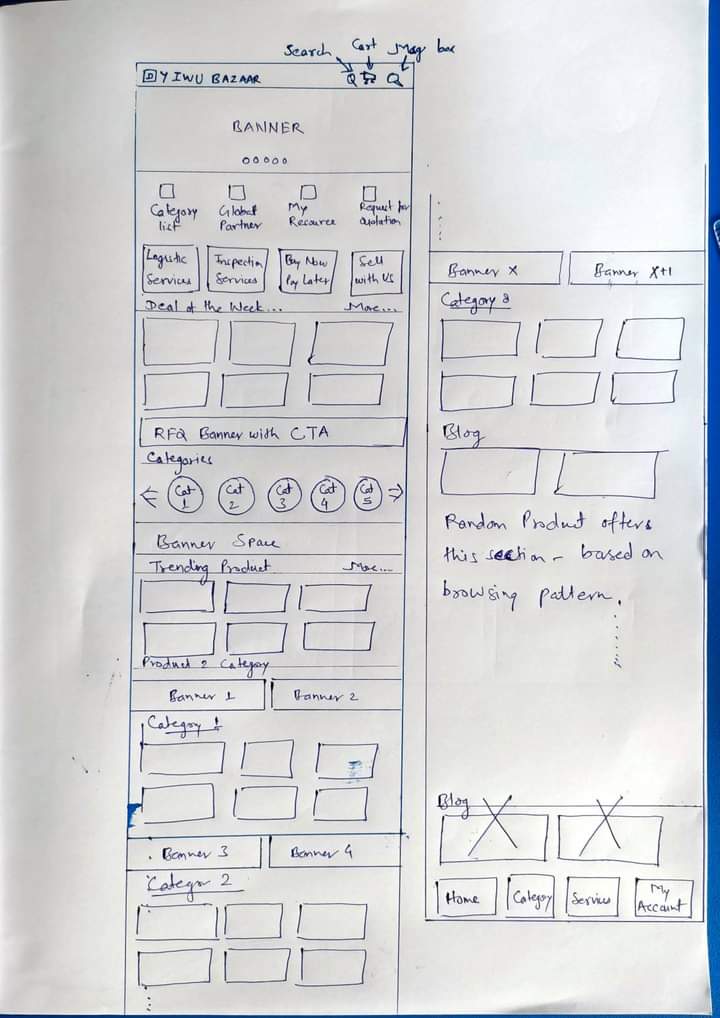 Search Cart Msg box
YIWU BAZAAR
BANNER
Category
list
Global
Partner
My
Resource
Request for
Quotation
Logistic
Services
Inspection
Services
Buy Now
Pay Later
Sell
with Us
Deal of the Week... More...
RFQ Banner with CTA
Categories
Cat
1
Cat
2
Cat
3
Cat
4
Cat
5
Banner Space
Trending Product More...
Product 2 Category
Banner 1 Banner 2
Category 1
Banner 3 Banner 4
Categor 2
Banner X Banner X+1
Category 3
Blog
Random Product offers
this section - based on
browsing pattern.
Blog
Home
Category
Services
My
Account